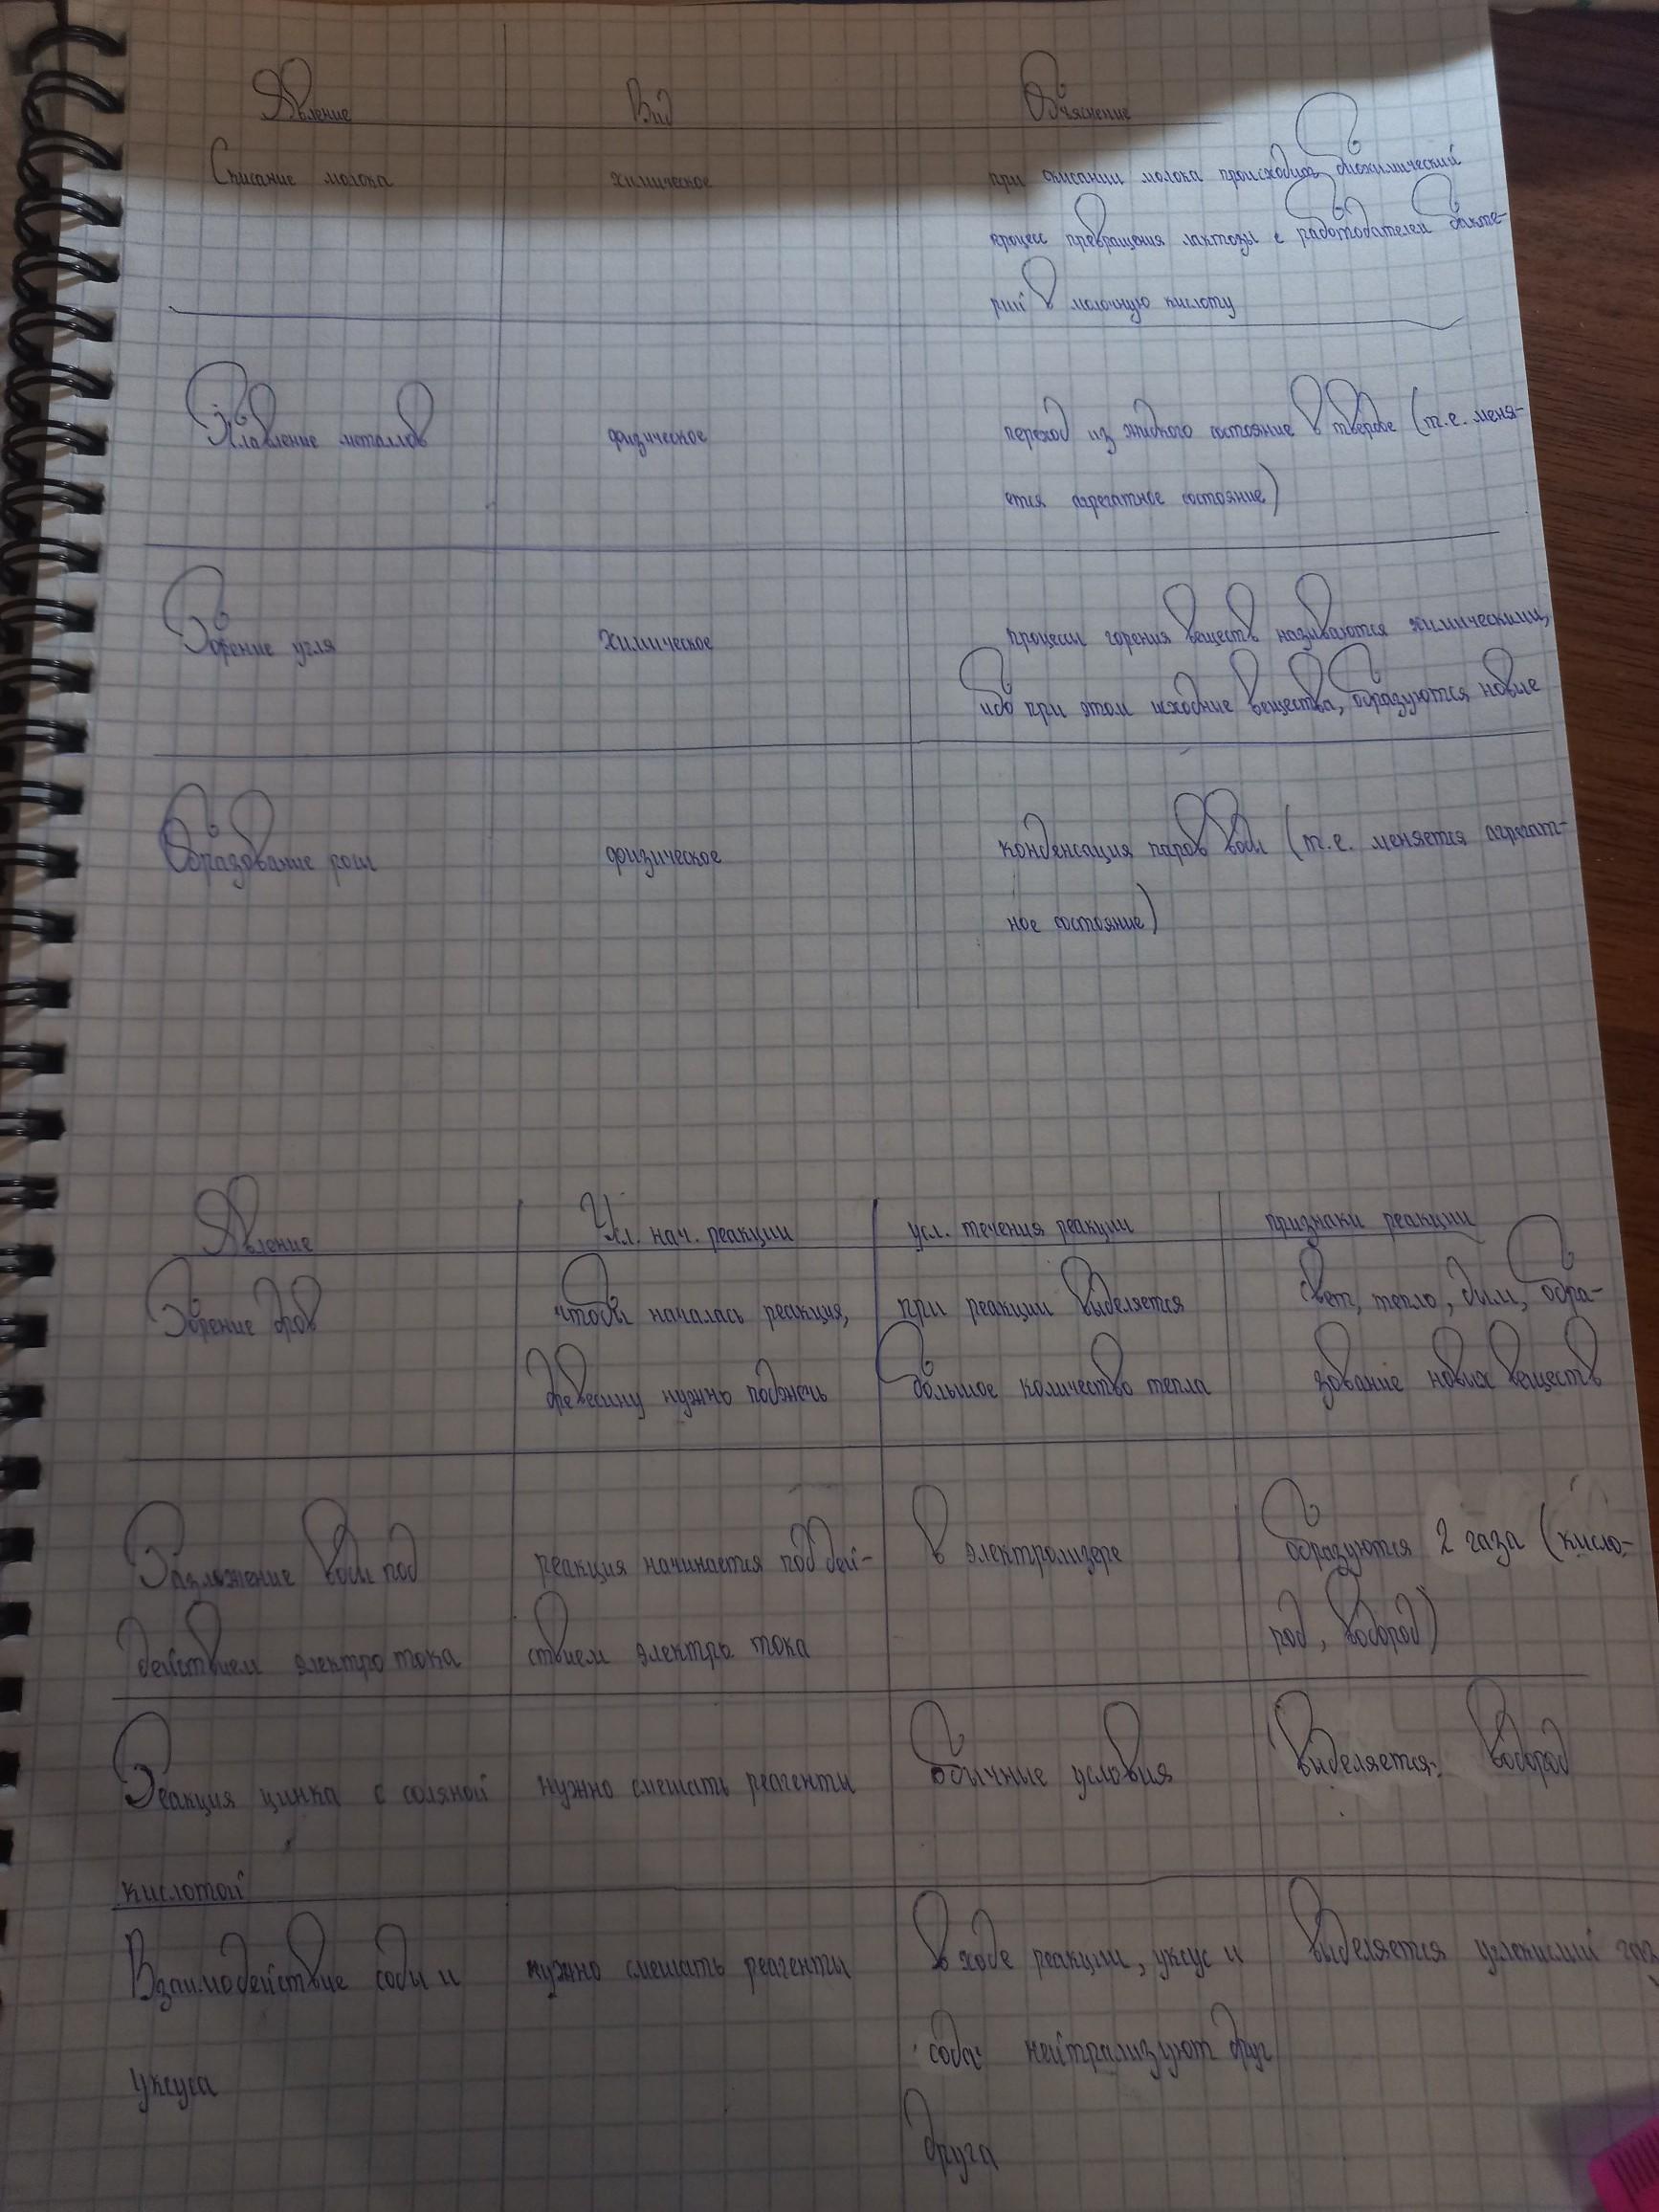 Явление Вид Объяснение
Скисание молока химическое при скисании молока происходит биохимический
процесс превращения лактозы с работодателем бакте-
рий в молочную кислоту
Плавление металлов физическое переход из жидкого состояние в твердое (т.е. меня-
ется агрегатное состояние)
Горение угля химическое процессы горения веществ называются химическими,
ибо при этом исходные вещества, образуются новые
Образование росы физическое конденсация паров воды (т.е. меняется агрегат-
ное состояние)
Явление Усл. нач. реакции усл. течения реакции признаки реакции
Горение дров чтобы началась реакция, при реакции выделяется свет, тепло, дым, обра-
древесину нужно поджечь большое количество тепла зование новых веществ
Разложение воды под реакция начинается под дей- в электролизере образуются 2 газа (кисло-
действием электро тока ствием электро тока род, водород)
Реакция цинка с соляной нужно смешать реагенты обычные условия выделяется водород
кислотой
Взаимодействие соды и нужно смешать реагенты в ходе реакции, уксус и выделяется углекислый газ
уксуса сода нейтрализуют друг
друга